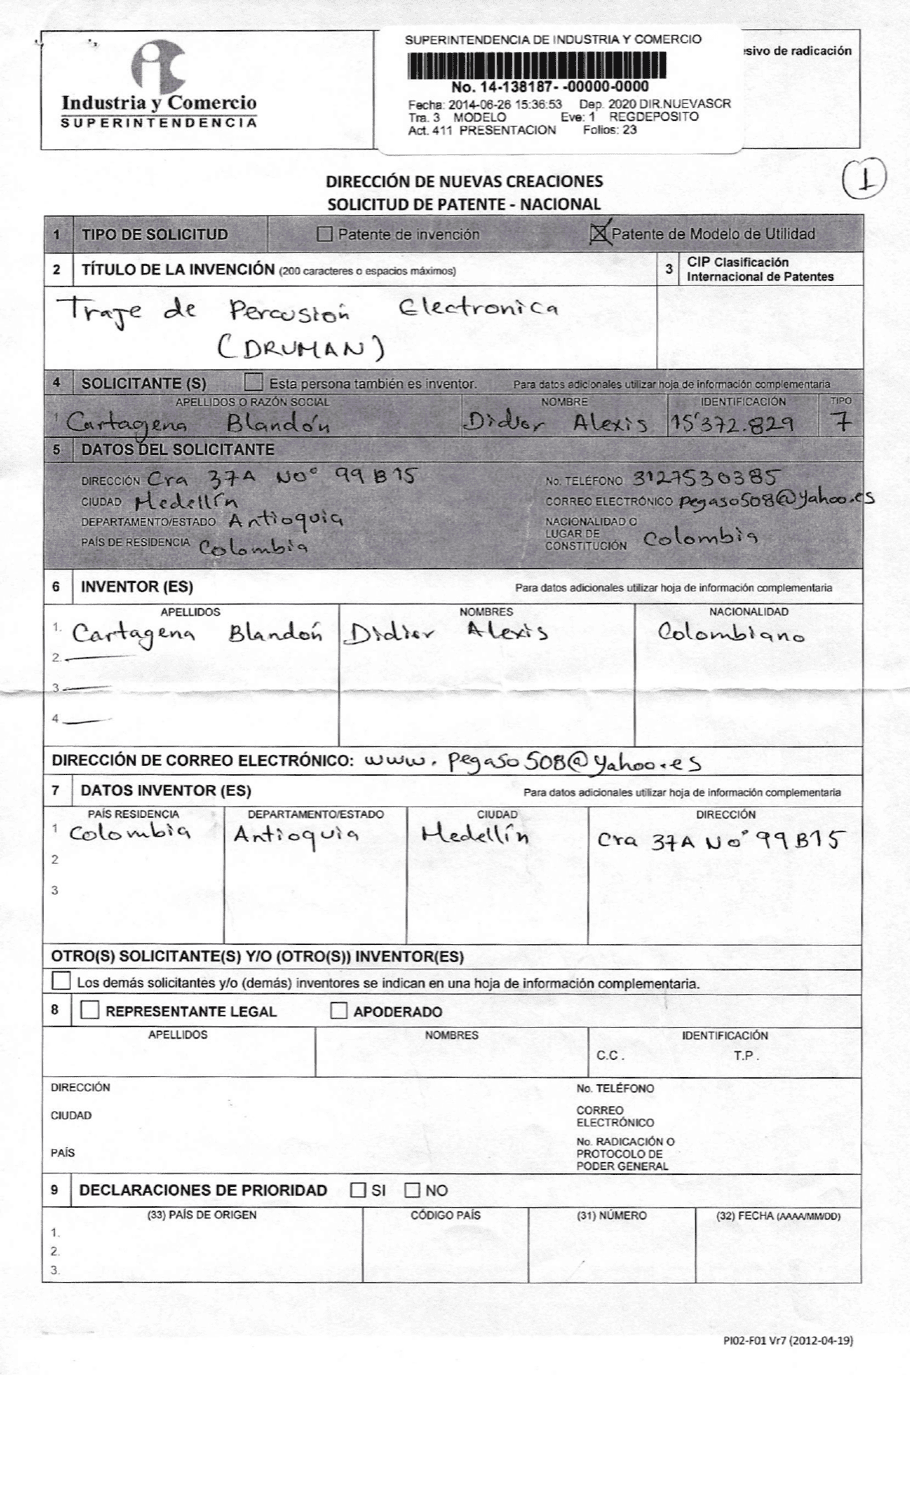 Industria y Comercio
SUPERINTENDENCIA
SUPERINTENDENCIA DE INDUSTRIA Y COMERCIO
sivo de radicación
No. 14-138187- -00000-0000
Fecha: 2014-06-26 15:36:53 Dep. 2020 DIR.NUEVASCR
Tra. 3 MODELO Eve: 1 REGDEPOSITO
Act. 411 PRESENTACION Folios: 23
1
DIRECCIÓN DE NUEVAS CREACIONES
SOLICITUD DE PATENTE - NACIONAL
1 TIPO DE SOLICITUD Patente de invención Patente de Modelo de Utilidad
2 TÍTULO DE LA INVENCIÓN (200 caracteres o espacios máximos)
3 CIP Clasificación
Internacional de Patentes
Traje de Percusión Electronica
(DRUMAN)
4 SOLICITANTE (S) Esta persona también es inventor. Para datos adicionales utilizar hoja de información complementaria
APELLIDOS O RAZÓN SOCIAL NOMBRE IDENTIFICACIÓN TIPO
1 Cartagena Blandón Didier Alexis 15'372.829 7
5 DATOS DEL SOLICITANTE
DIRECCIÓN Cra 37A No° 99B15 No. TELÉFONO 3127530385
CIUDAD Medellín CORREO ELECTRÓNICO pegaso508@yahoo.es
DEPARTAMENTO/ESTADO Antioquia
PAÍS DE RESIDENCIA Colombia
NACIONALIDAD O
LUGAR DE
CONSTITUCIÓN Colombia
6 INVENTOR (ES) Para datos adicionales utilizar hoja de información complementaria
APELLIDOS NOMBRES NACIONALIDAD
1. Cartagena Blandón Didier Alexis Colombiano
2.
3
4
DIRECCIÓN DE CORREO ELECTRÓNICO: www. pegaso508@yahoo.es
7 DATOS INVENTOR (ES) Para datos adicionales utilizar hoja de información complementaria
PAÍS RESIDENCIA DEPARTAMENTO/ESTADO CIUDAD DIRECCIÓN
1 Colombia Antioquia Medellín Cra 37A No° 99B15
2
3
OTRO(S) SOLICITANTE(S) Y/O (OTRO(S)) INVENTOR(ES)
Los demás solicitantes y/o (demás) inventores se indican en una hoja de información complementaria.
8 REPRESENTANTE LEGAL APODERADO
APELLIDOS NOMBRES IDENTIFICACIÓN
C.C. T.P.
DIRECCIÓN No. TELÉFONO
CIUDAD CORREO
ELECTRÓNICO
PAÍS No. RADICACIÓN O
PROTOCOLO DE
PODER GENERAL
9 DECLARACIONES DE PRIORIDAD SI NO
(33) PAÍS DE ORIGEN CÓDIGO PAÍS (31) NÚMERO (32) FECHA (AAAA/MM/DD)
1.
2.
3.
PI02-F01 Vr7 (2012-04-19)